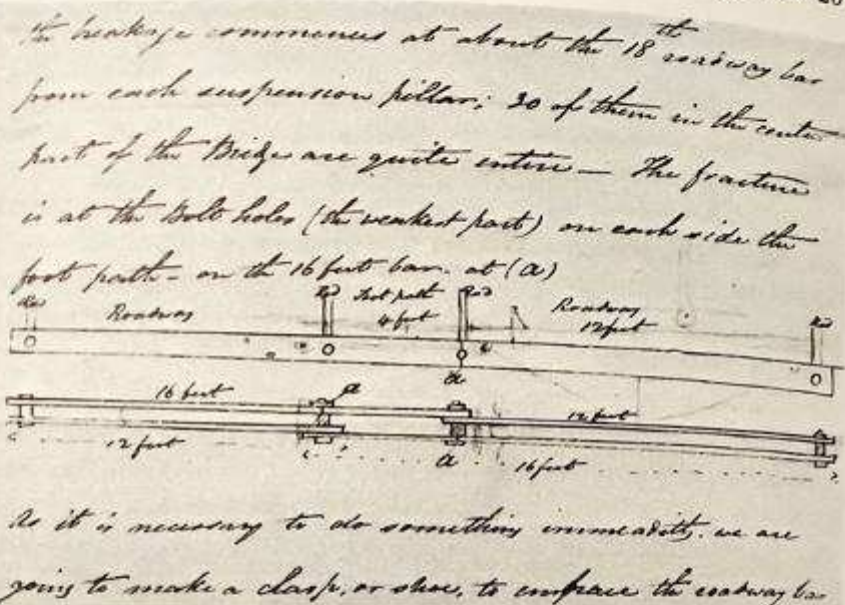 the breakage commences at about the 18th roadway bar
from each suspension pillar; 30 of them in the center
part of the Bridge are quite entire — The fracture
is at the Bolt holes (the weakest part) on each side the
foot path - on the 16 feet bar. at (a)
Rod Roadway Rod Foot path 4 feet Rod Roadway 12 feet Rod
a
16 feet a 12 feet
12 feet a 16 feet
As it is necessary to do something immeaditly. we are
going to make a clasp, or shoe, to embrace the roadway bar